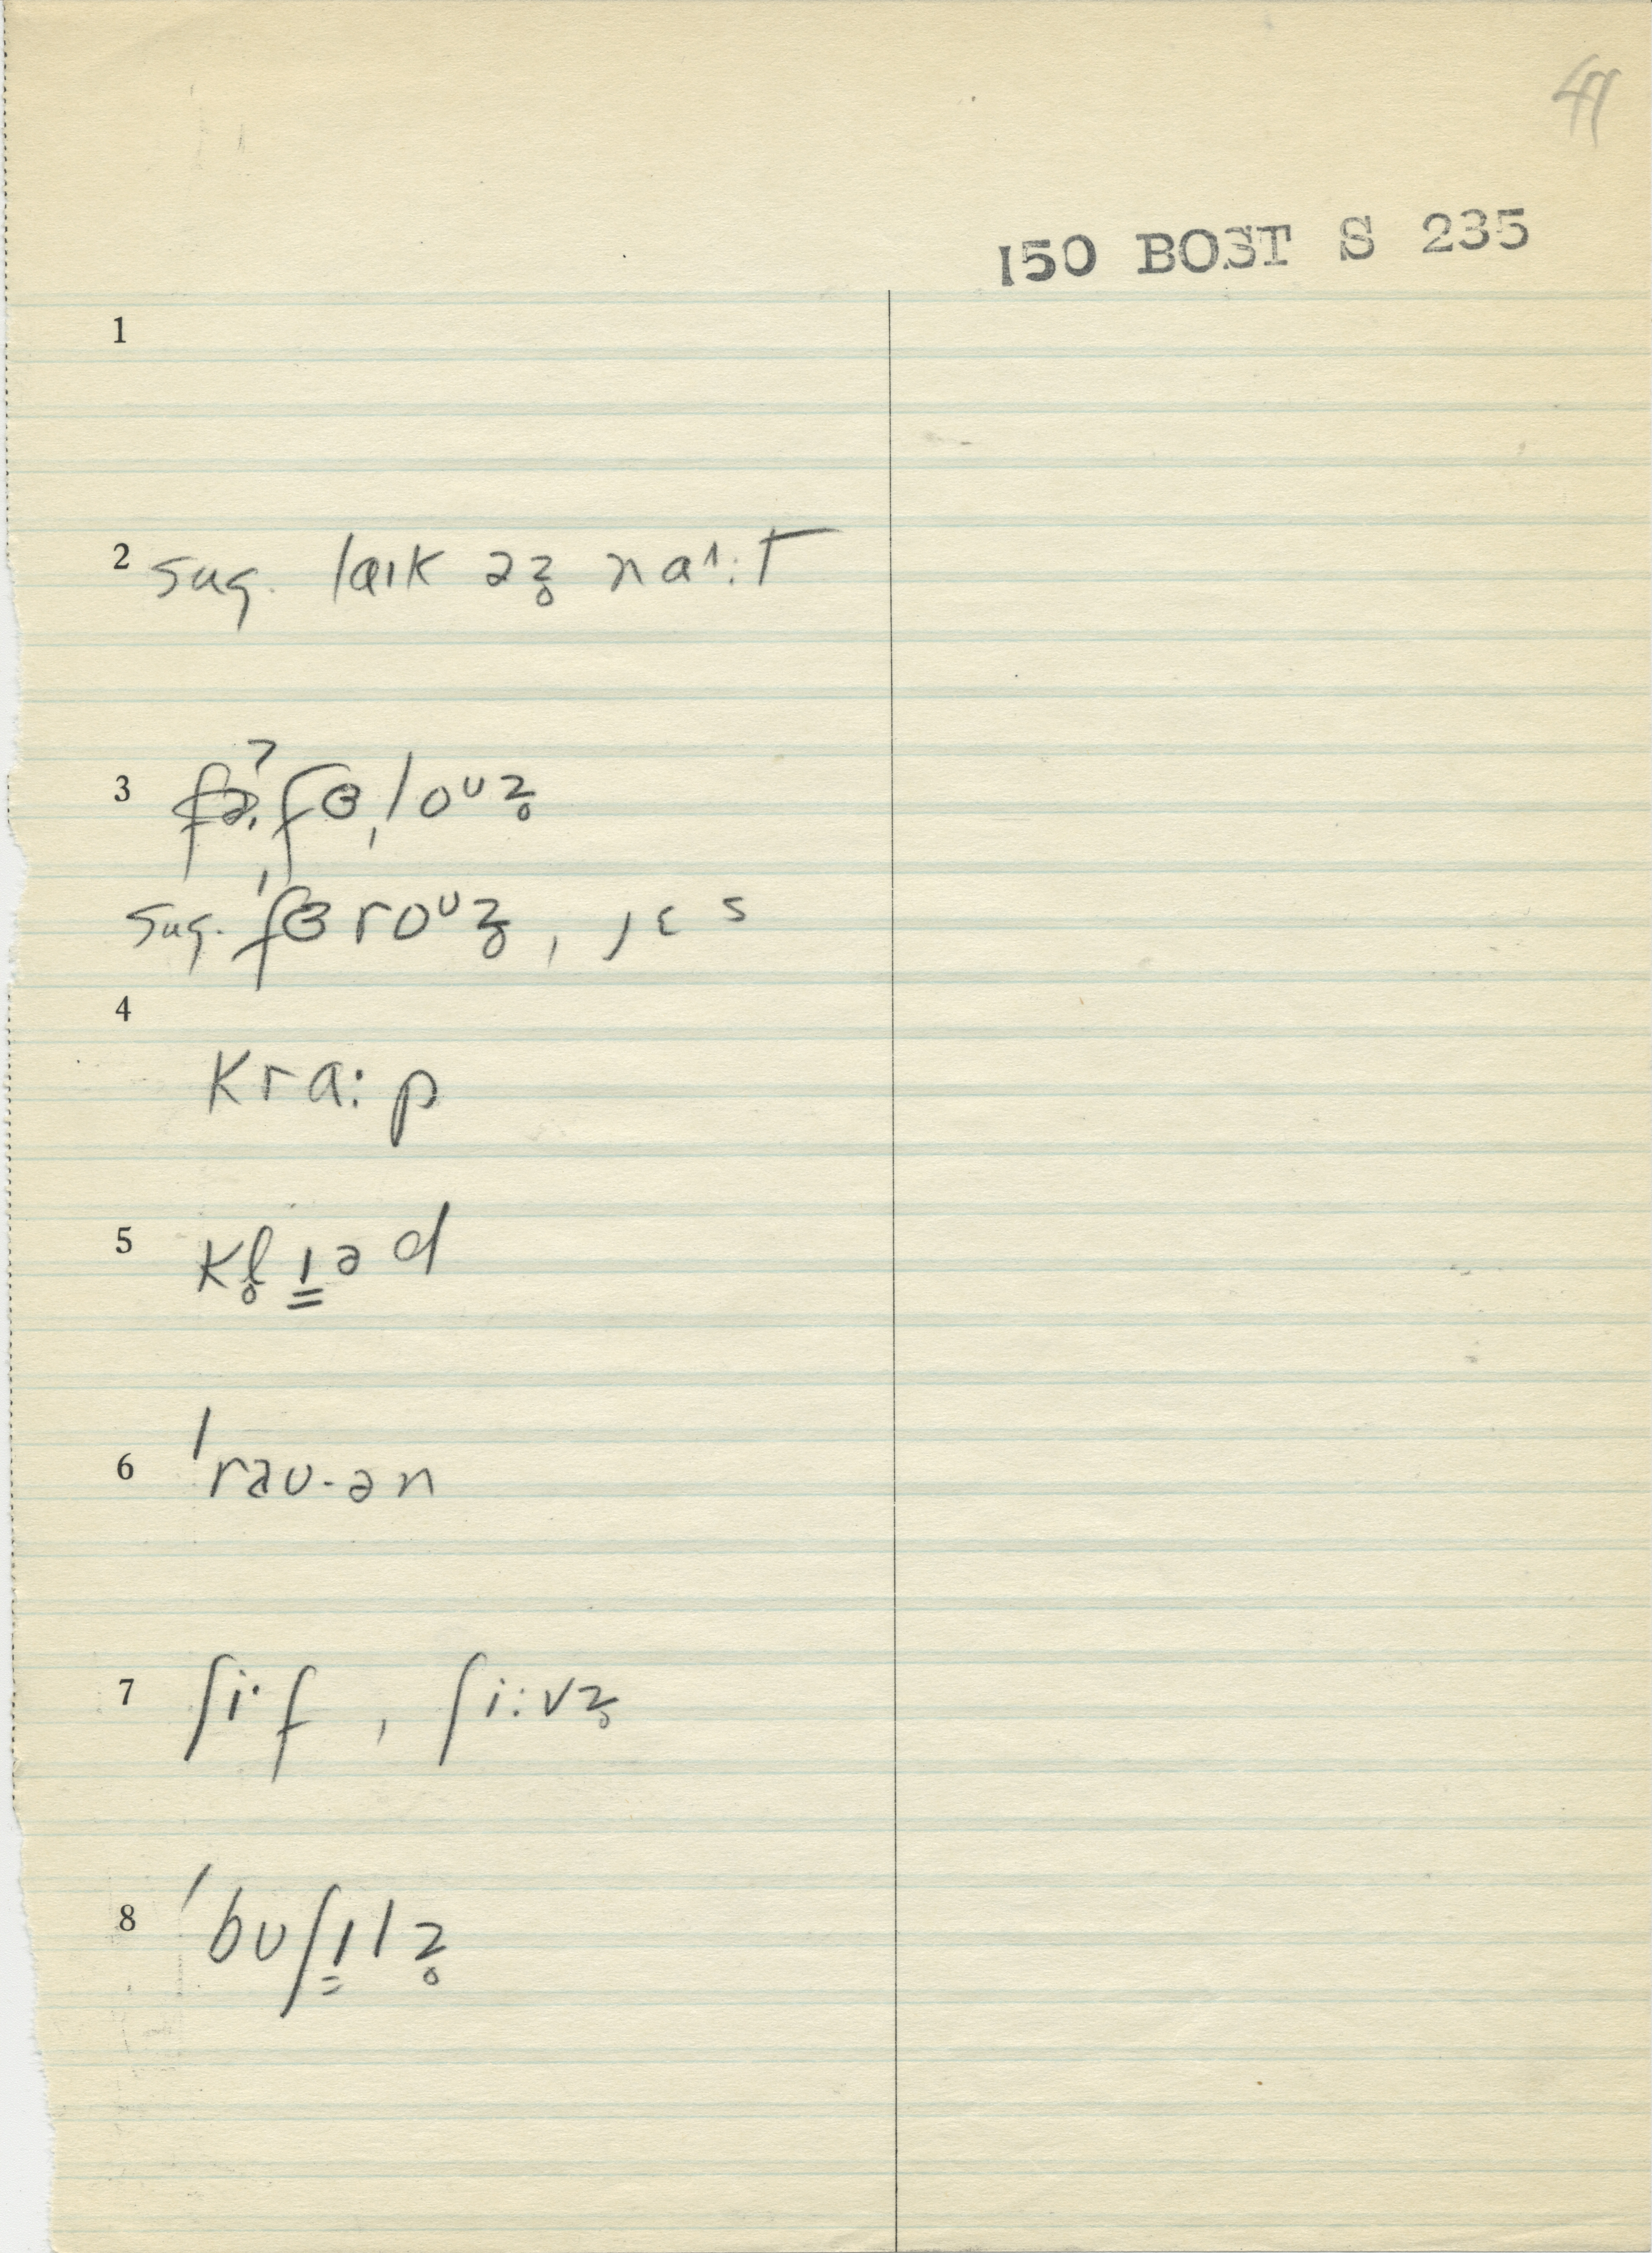 47
150 BOST S 235
1
2 sug. laɪk əz̥ naˈ:t
3 fɵˌloᶷz̥
sug. ˈfɵroᶷz̥, jɛs
4
kra:p
5 kl̥ɪ̳əd
6 ˈrəʊ-ən
7 ʃi·f, ʃi:vz̥
8 ˈbʊʃɪ̳lz̥